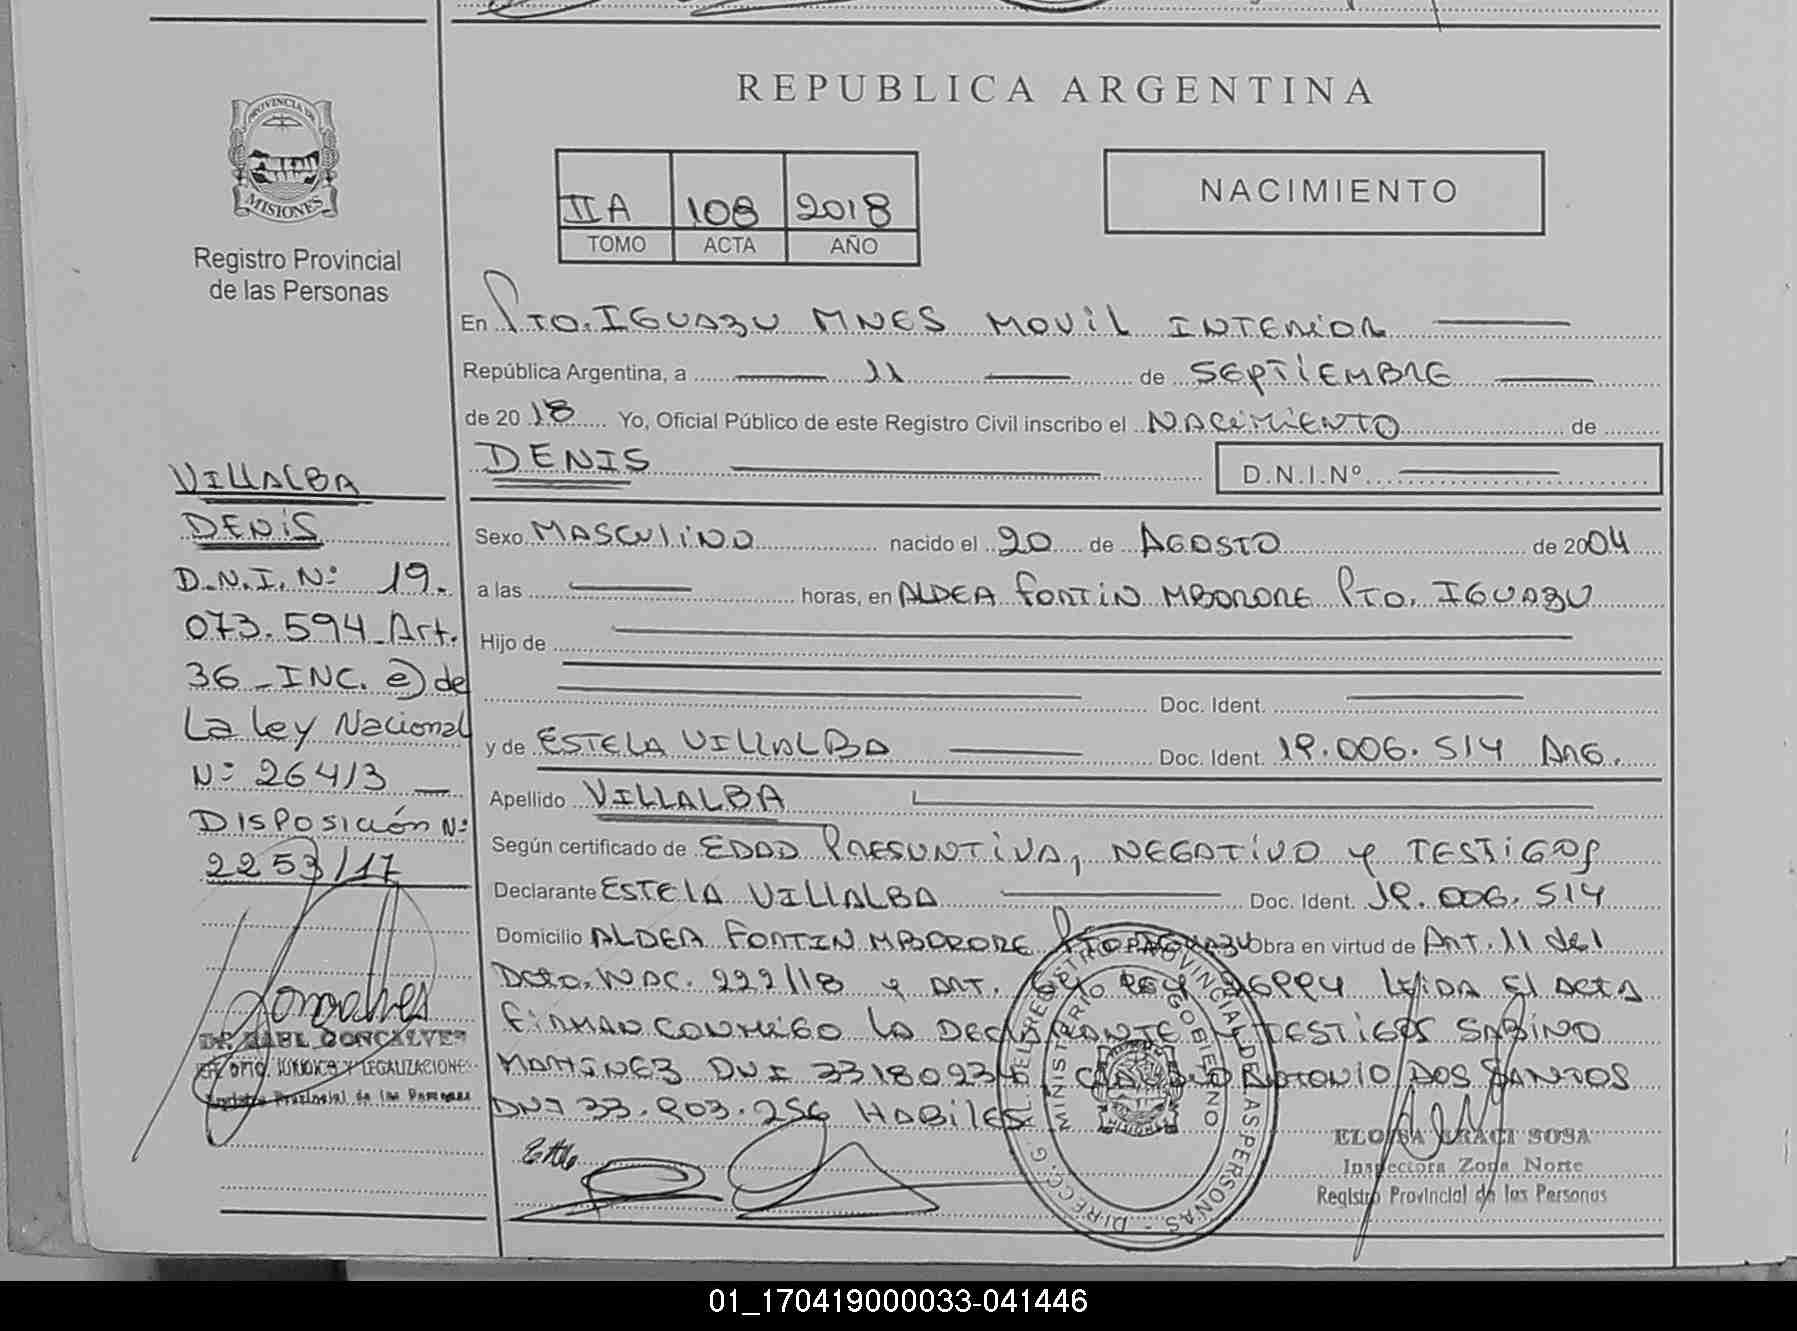 REPUBLICA ARGENTINA
PROVINCIA DE
MISIONES
Registro Provincial
de las Personas
IIA 108 2018
TOMO ACTA AÑO
NACIMIENTO
En Pto. IGUAZU MNES MOVIL INTERIOR
República Argentina, a 11 de SEPTIEMBRE
de 2018 Yo, Oficial Público de este Registro Civil inscribo el NACIMIENTO de
DENIS D.N.I.Nº
Sexo MASCULINO nacido el 20 de AGOSTO de 2004
a las horas, en ALDEA FORTIN MBORORE Pto. IGUAZU
Hijo de
Doc. Ident.
y de ESTELA VILLALBA Doc. Ident. 19.006.514 ARG.
Apellido VILLALBA
Según certificado de EDAD PRESUNTIVA, NEGATIVO y TESTIGOS
Declarante ESTELA VILLALBA Doc. Ident. 19.006.514
Domicilio ALDEA FORTIN MBORORE Obra en virtud de Art. 11 del
Dcto. NAC. 222/18 y ART. LEY 26994 LEIDA El ACTA
FIRMAN CONMIGO LA DECLARANTE TESTIGOS SABINO
MARTINEZ DNI ANTONIO DOS SANTOS
DNI 33.903.256 HABILES
VILLALBA
DENIS
D.N.I. Nº 19.
073.594 Art.
36 - INC. e) de
La Ley Nacional
Nº 26413
DISPOSICIÓN Nº
2253/17
Goncalves
RAUL GONCALVES
JURIDICA Y LEGALIZACIONES
Registro Provincial de las Personas
DIRECC. G RAL. DEL REGISTRO PROVINCIAL DE LAS PERSONAS
MINISTERIO GOBIERNO
MISIONES
ELOISA ARACI SOSA
Inspectora Zona Norte
Registro Provincial de las Personas
01_170419000033-041446